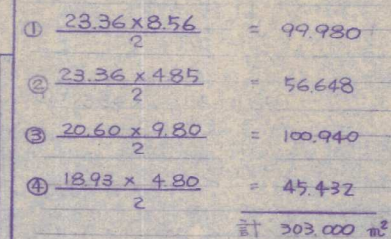 ① 23.36 × 8.56 / 2 = 99.980
② 23.36 × 4.85 / 2 = 56.648
③ 20.60 × 9.80 / 2 = 100.940
④ 18.93 × 4.80 / 2 = 45.432
計 303.000 m²